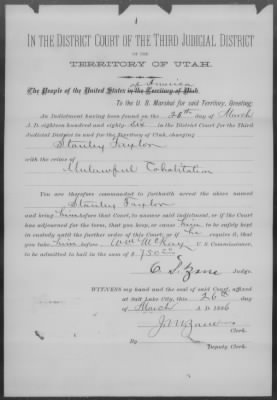 IN THE DISTRICT COURT OF THE THIRD JUDICIAL DISTRICT
OF THE
TERRITORY OF UTAH.
of America
The People of the United States in the Territory of Utah.
To the U. S. Marshal for said Territory, Greeting:
An Indictment having been found on the 26th day of March
A. D. eighteen hundred and eighty-six in the District Court for the Third
Judicial District in and for the Territory of Utah, charging
Stanley Taylor
with the crime of
Unlawful Cohabitation
You are therefore commanded to forthwith arrest the above named
Stanley Taylor
and bring him before that Court, to answer said indictment, or if the Court
has adjourned for the term, that you keep, or cause him to be safely kept
in custody until the further order of this Court, or if he require it, that
you take him before Wm McKay U. S. Commissioner,
to be admitted to bail in the sum of $ 750
C. S. Zane Judge.
WITNESS my hand and the seal of said Court, affixed
at Salt Lake City, this 26th day
of March A. D. 1886
Clerk.
By
Deputy Clerk.